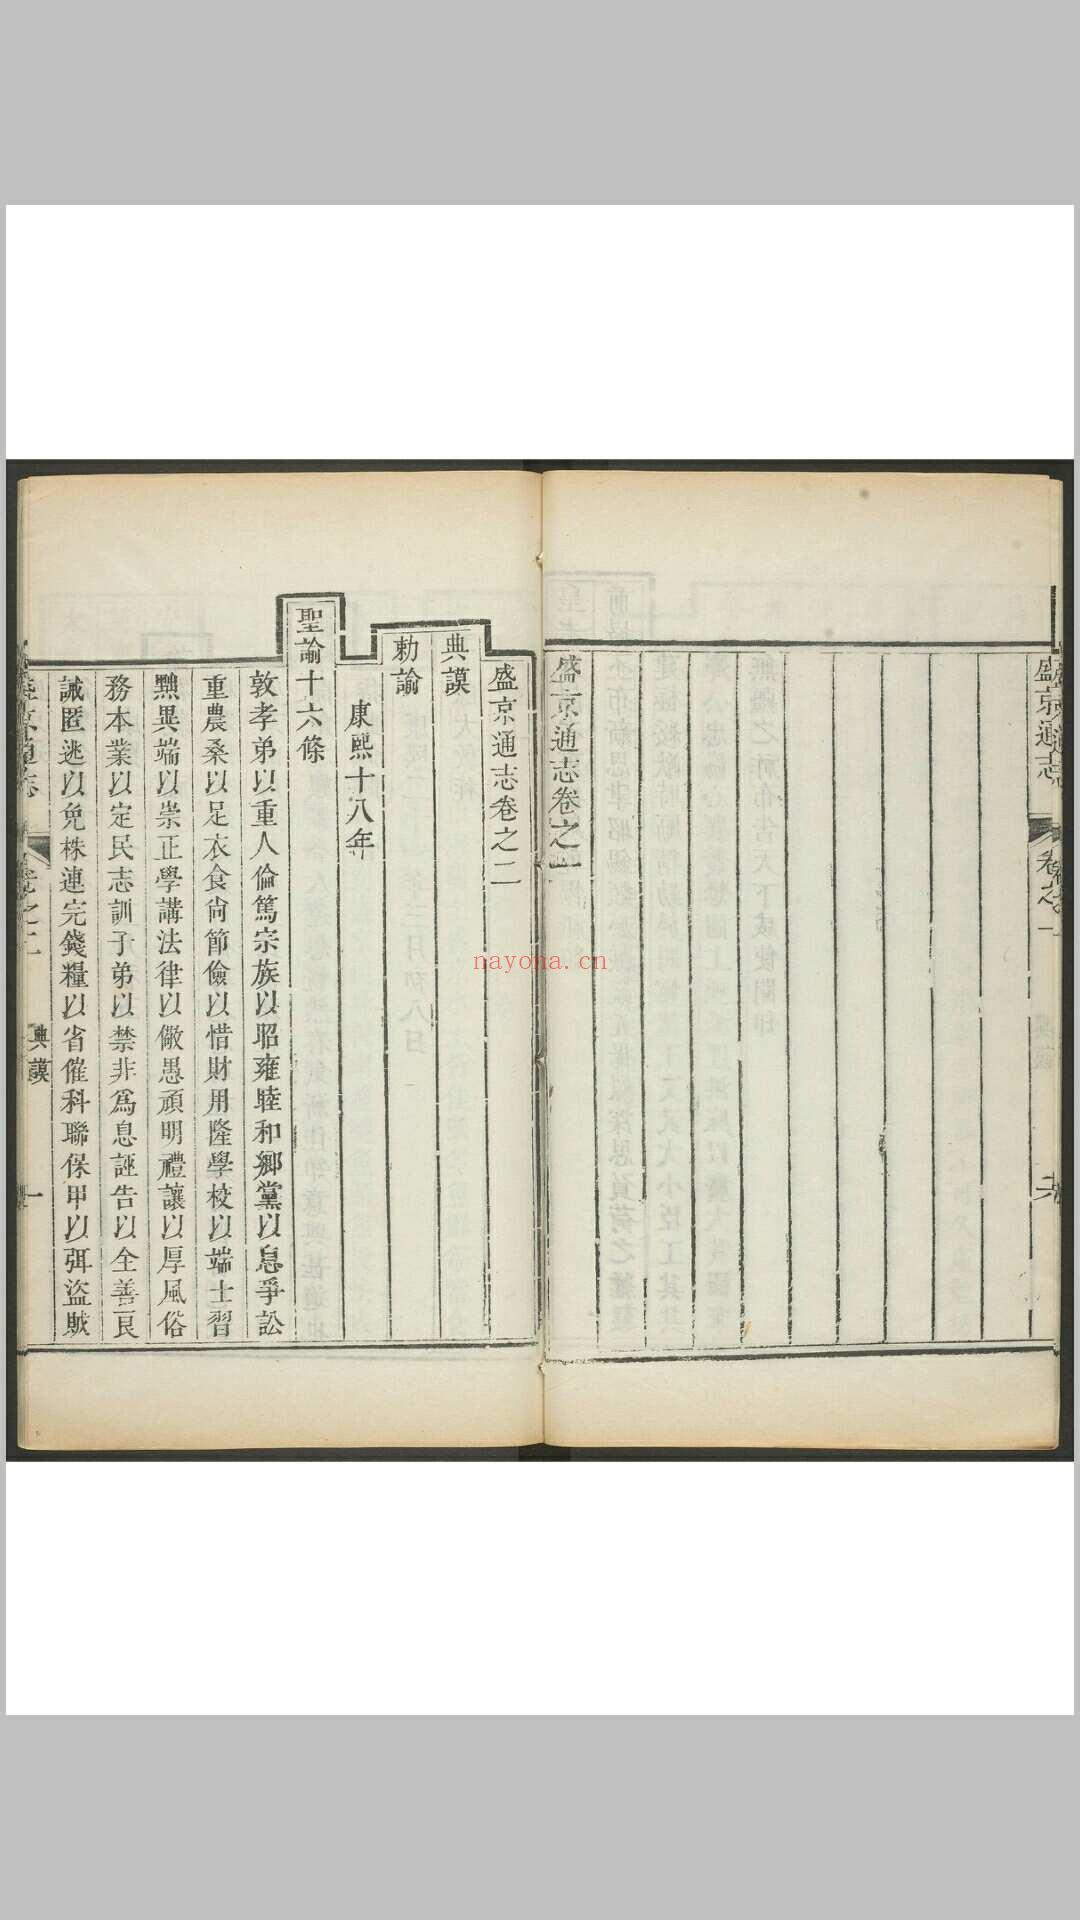 盛京通志
卷之一
盛京通志卷之一
盛京通志卷之二
典謨
勅諭
康熙十八年
聖諭十六條
敦孝弟以重人倫篤宗族以昭雍睦和鄉黨以息爭訟
重農桑以足衣食尙節儉以惜財用隆學校以端士習
黜異端以崇正學講法律以儆愚頑明禮讓以厚風俗
務本業以定民志訓子弟以禁非爲息誣告以全善良
誡匿逃以免株連完錢糧以省催科聯保甲以弭盜賊
典謨
一
nayona.cn